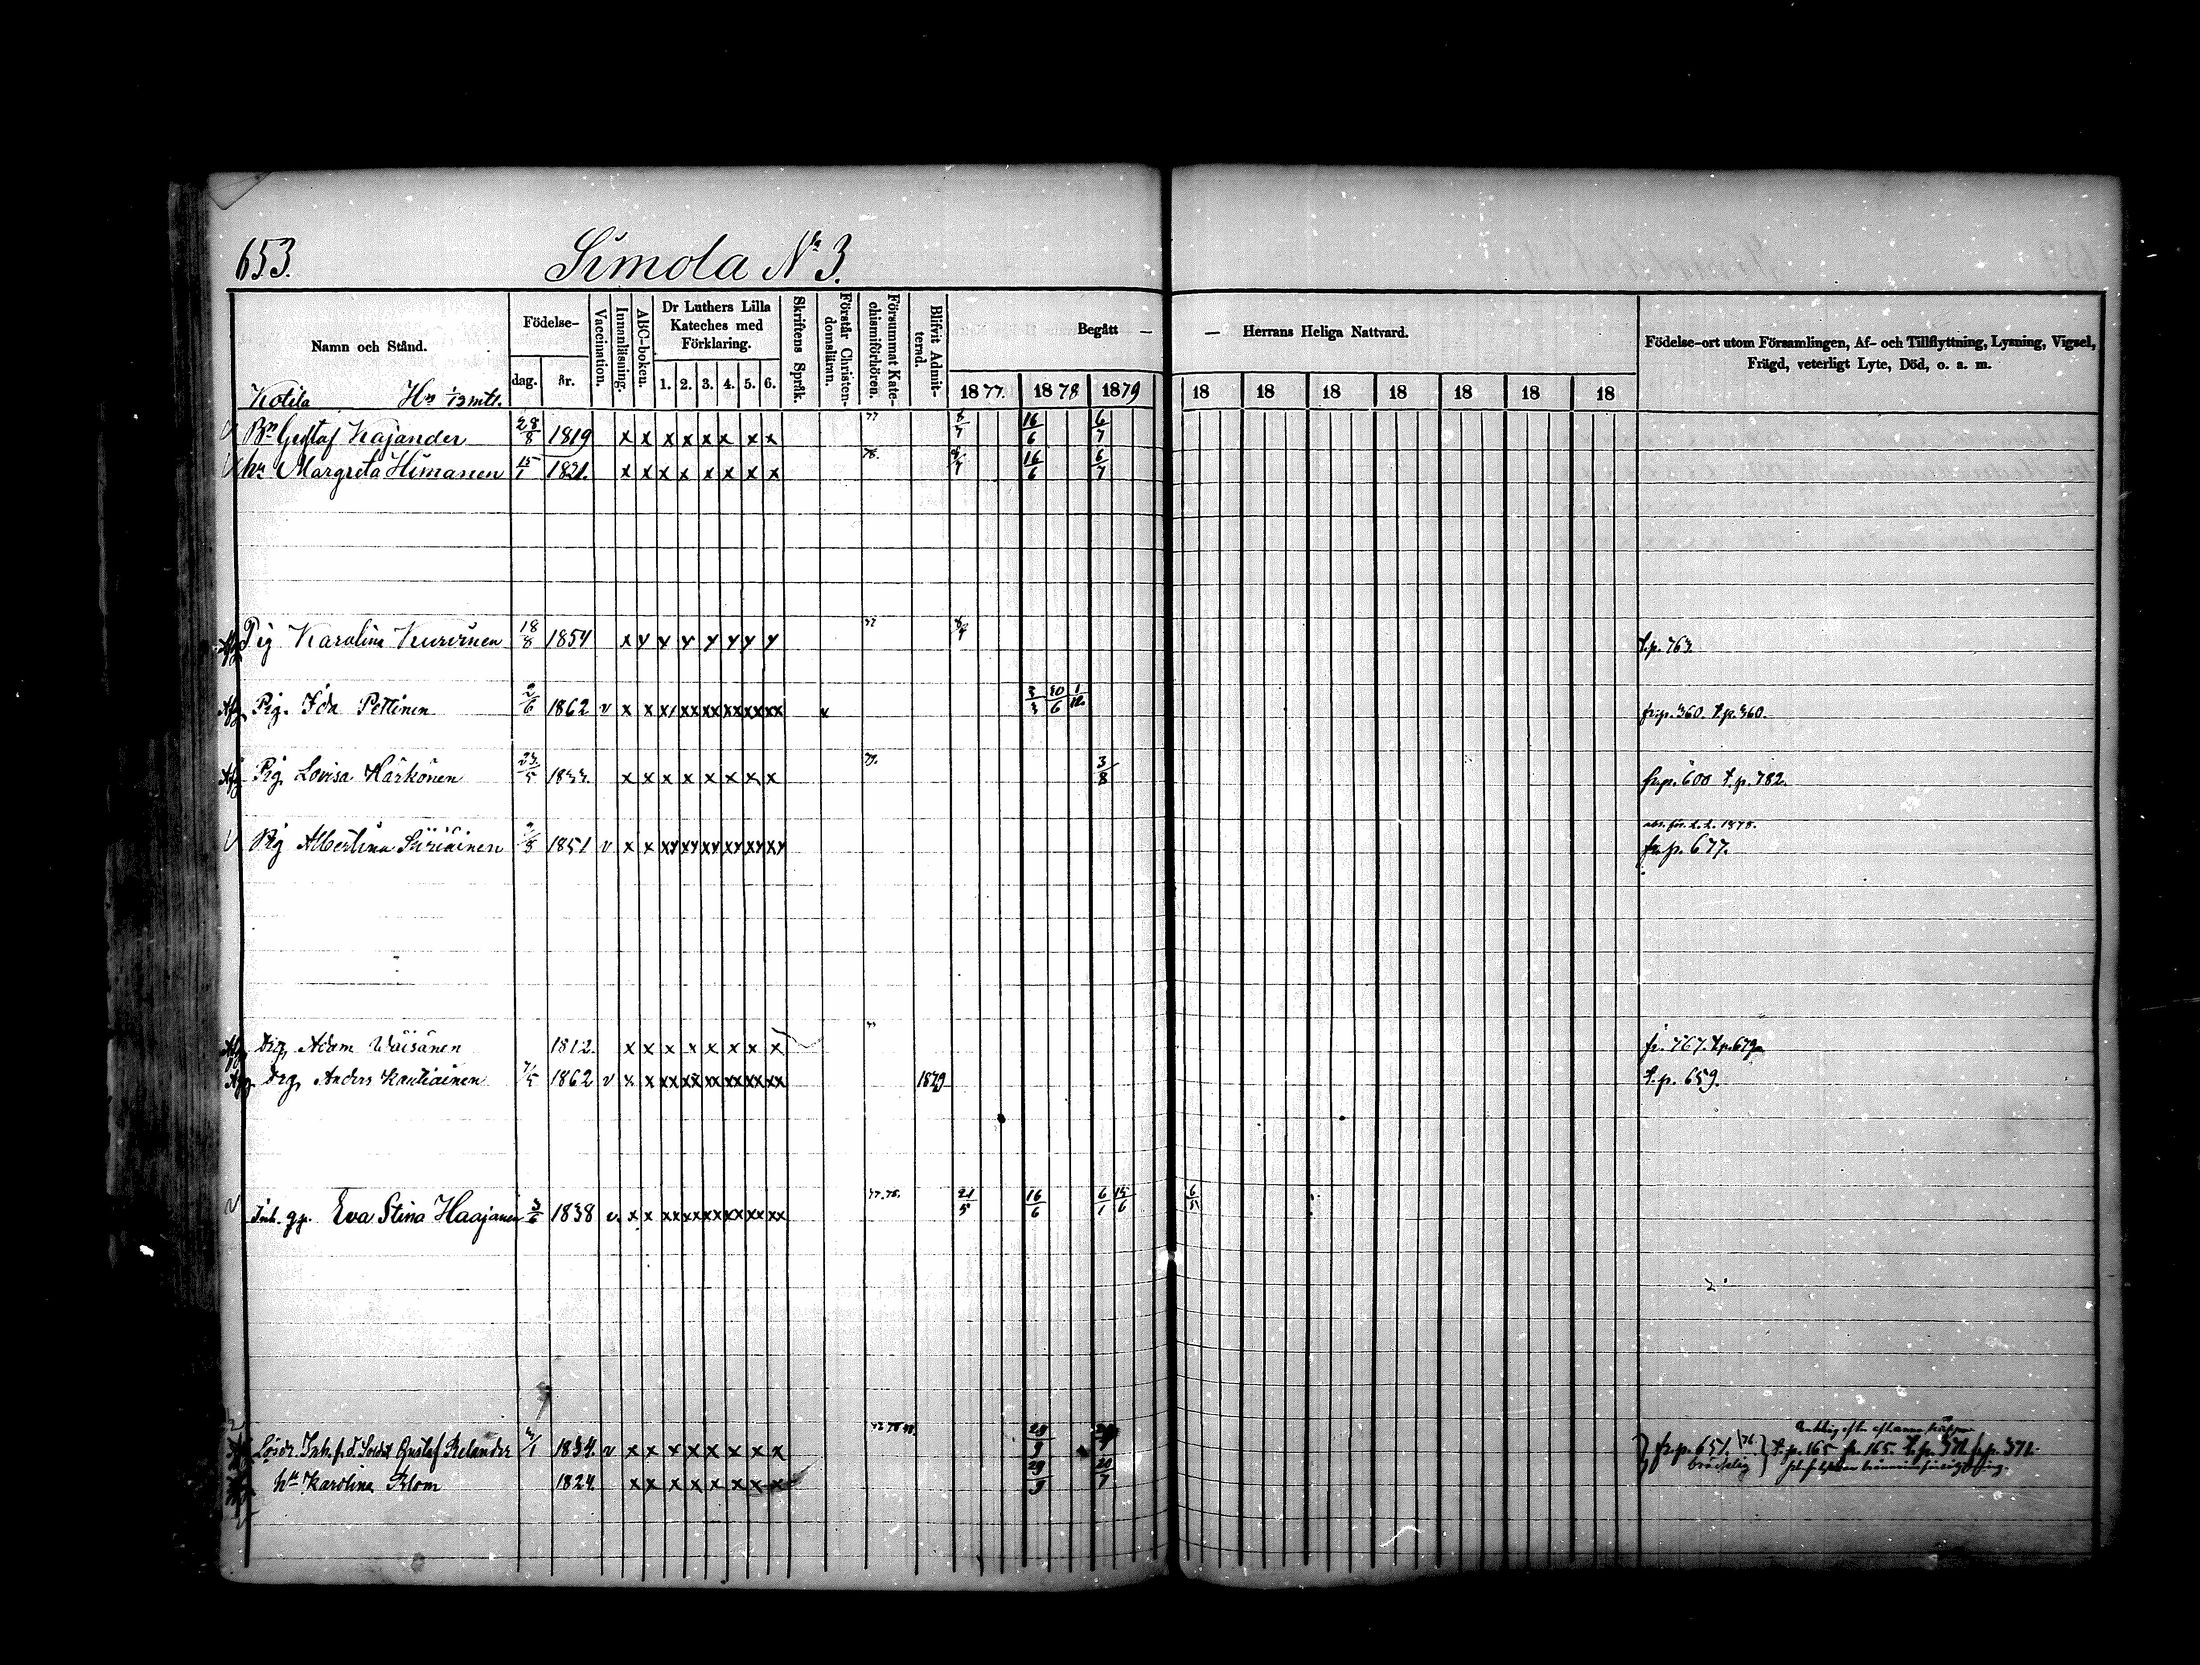 653. Simola No 3.
Namn och Stånd.
Födelse-
dag. år.
Vaccination.
Innanläsning.
ABC-boken.
Dr Luthers Lilla
Kateches med
Förklaring.
1. 2. 3. 4. 5. 6.
Skriftens Språk.
Förstår Christen-
domslärn.
Försummat Kate-
chismiförhören.
Blifvit Admit-
terad.
Begått — — Herrans Heliga Nattvard.
1877. 1878 1879 18 18 18 18 18 18 18
Födelse-ort utom Församlingen, Af- och Tillflyttning, Lysning, Vigsel,
Frägd, veterligt Lyte, Död, o. a. m.
Kotila Hn 1/12 mtl.
Bn Gustaf Kajander 28/8 1819 x x x x x x x x 77 8/7 16/6 6/7
hu Margreta Himanen 15/1 1821. x x x x x x x x 78. 8/7 16/6 6/7
Pig Karolina Kurvinen 18/8 1854 x y y y y y y y 77 t.p. 763.
Pig. Ida Pettinen 2/6 1862 v x x xx xx xx xx xx 3/3 30/6 1/12. fr.p. 360. t.p. 360.
Pig. Lovisa Härkönen 23/5 1833. x x x x x x x x 3/8 fr.p. 600 t.p. 782.
1878.
Pig Albertina 1851 v x x xy xy xy xy xy xy fr.p. 677.
Drg. Adam Wäisänen 1812. x x x x x x x x 77 fr. 767. t.p. 679
Drg. Anders Kautiainen 7/5 1862 v x x xx xx xx xx xx xx 1879 t.p. 659.
Inh. gp. Eva Stina Haajanen 3/6 1838 v. x x xx xx xx xx xx xx 77. 78. 21/5 16/6 6/1 15/6 6/5
Lösdr. Inh. f.d. Soldt Gustaf Relander 1834. v x x x x x x x x 29/9 fr.p. 651. t.p. 165 fr. 165. t.p. 371. fr.p. 371.
bräcklig
hu Karolina Blom 1824. x x x x x x x x 29/9 20/7